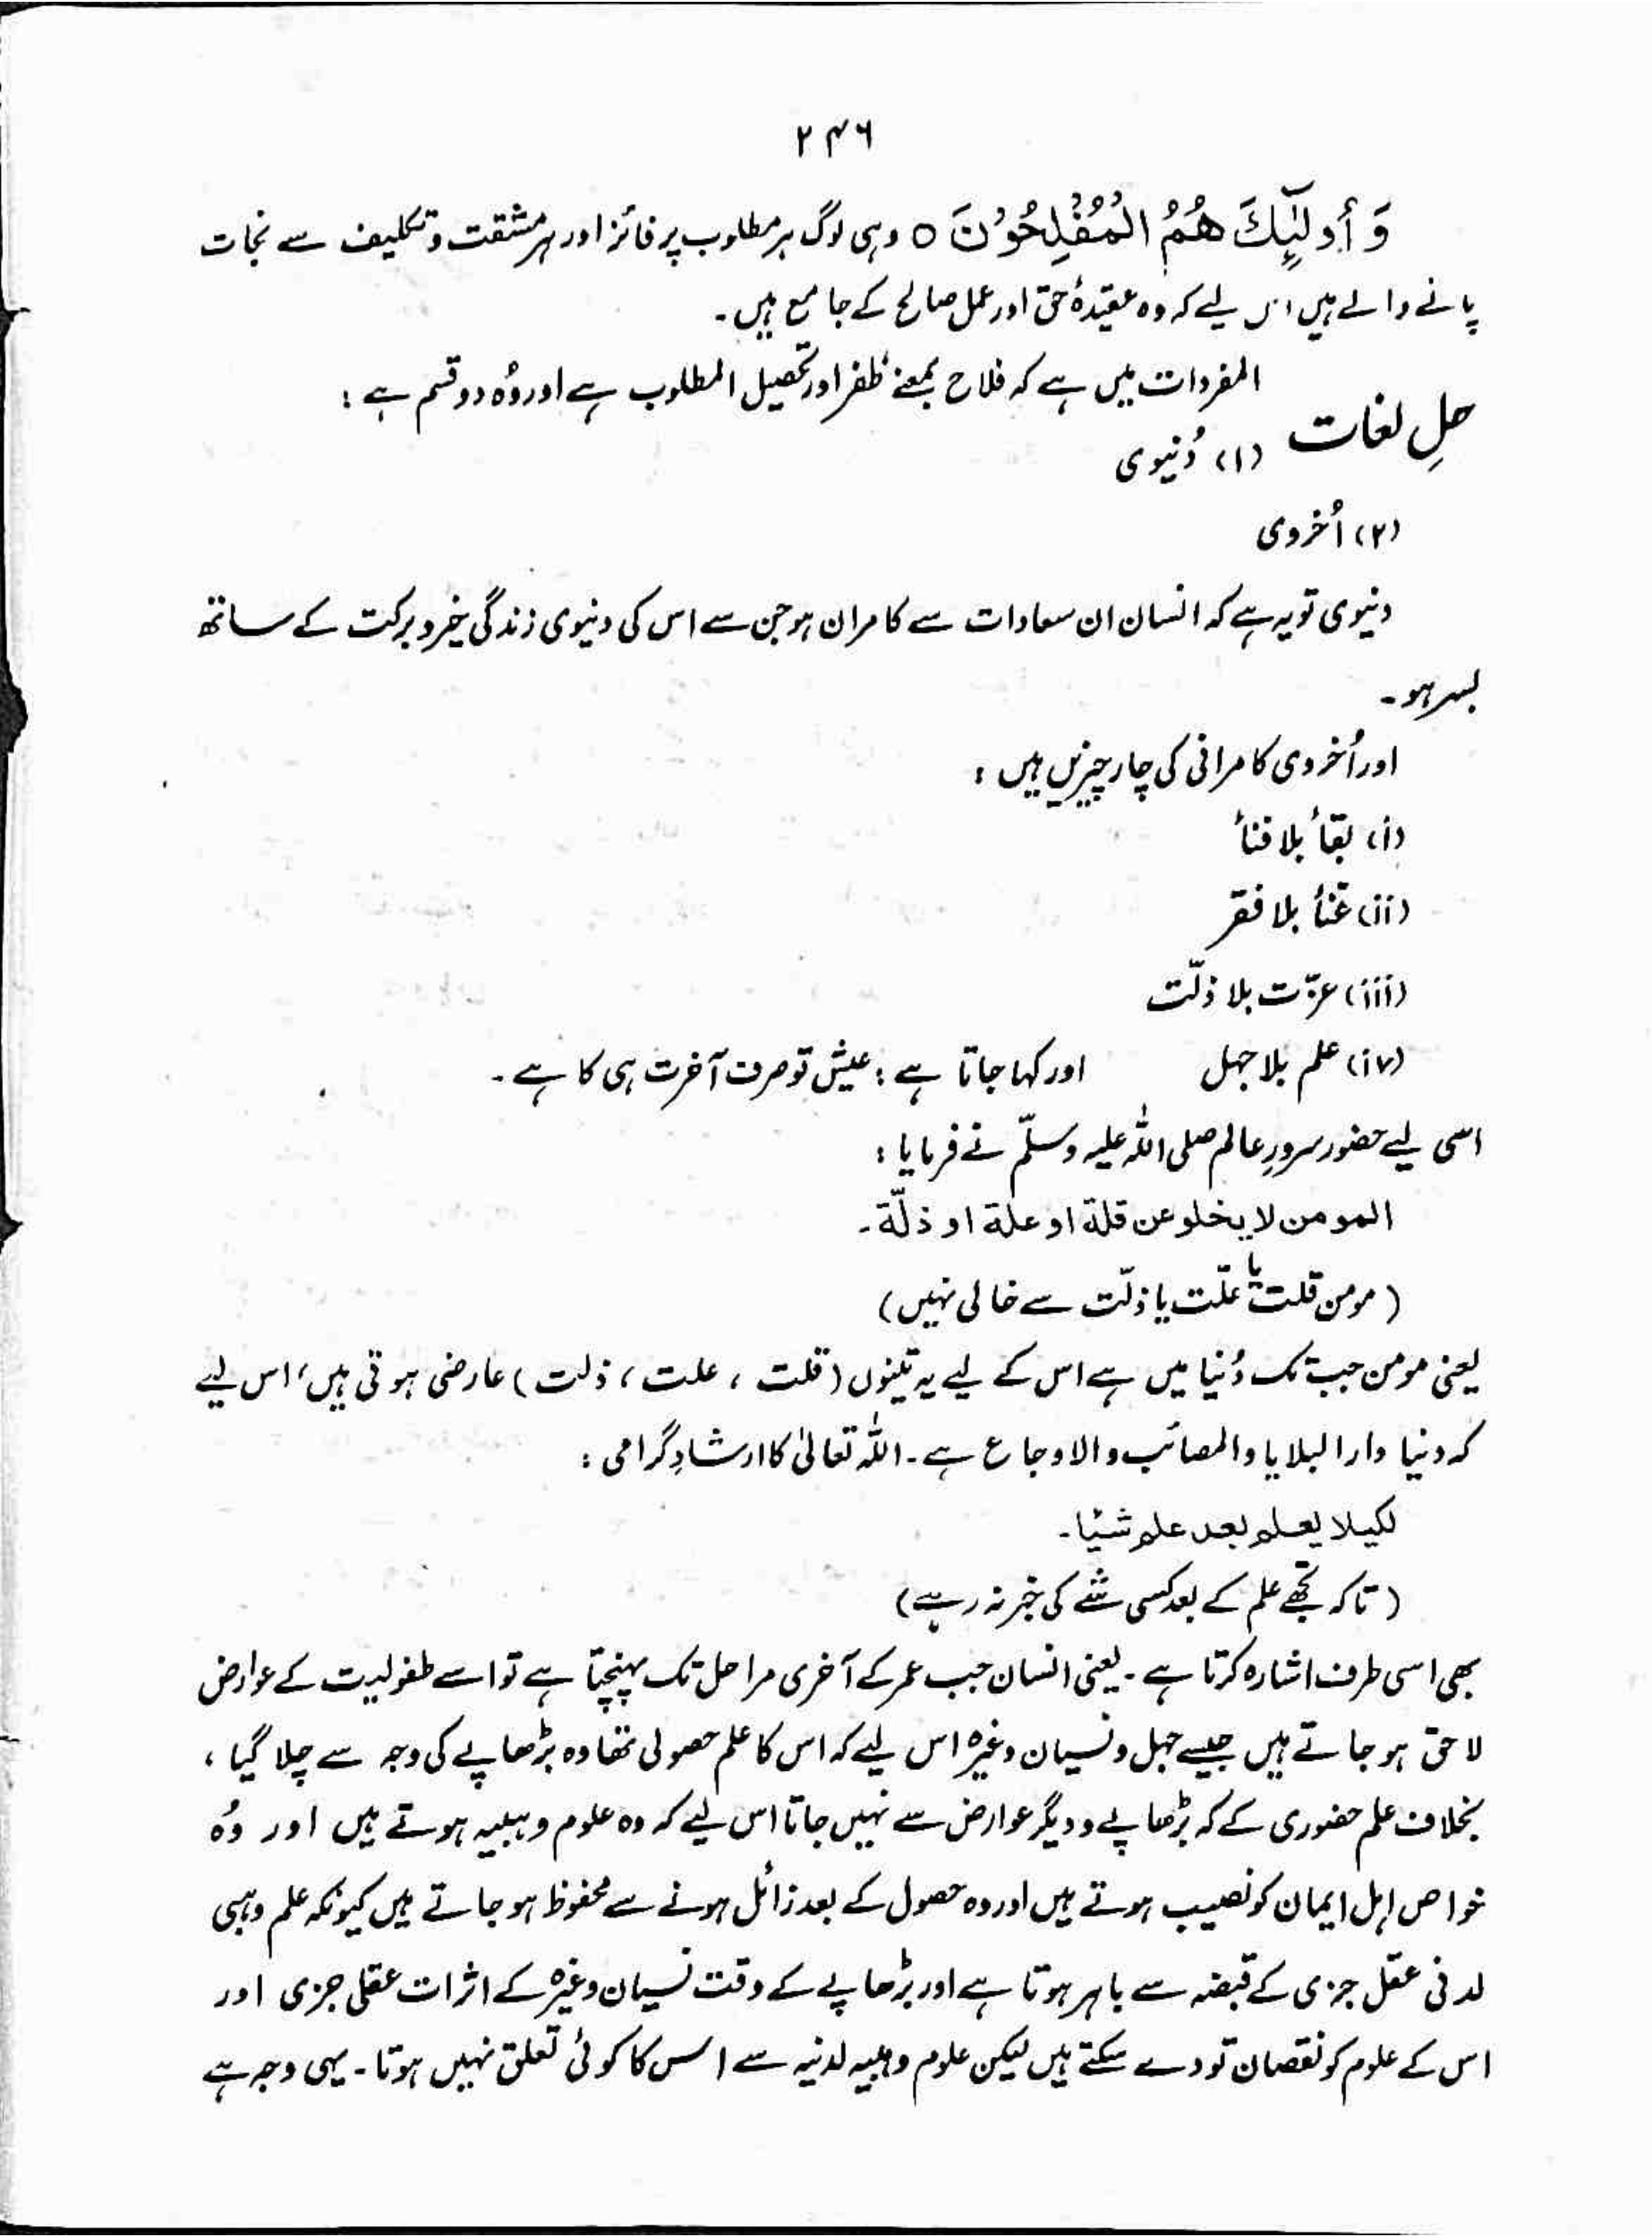 ۲۴۶
وَ أُولٰٓئِكَ هُمُ الْمُفْلِحُوْنَ ○ وہی لوگ ہر مطلوب پر فائز اور ہر مشقت و تکلیف سے نجات
پانے والے ہیں اس لیے کہ وہ عقیدۂ حق اور عمل صالح کے جامع ہیں۔
المفردات میں ہے کہ فلاح بمعنے ظفر اور تحصیل المطلوب ہے اور وُہ دو قسم ہے :
حلِ لغات
(۱) دُنیوی
(۲) اُخروی
دنیوی تو یہ ہے کہ انسان ان سعادات سے کامران ہو جن سے اس کی دنیوی زندگی خیر و برکت کے ساتھ
بسر ہو۔
اور اُخروی کامرانی کی چار چیزیں ہیں :
(i) بقأ بلا فنأ
(ii) غنأ بلا فقر
(iii) عزّت بلا ذلّت
(iv) علم بلا جہل اور کہا جاتا ہے : عیش تو صرف آخرت ہی کا ہے۔
اسی لیے حضور سرورِ عالم صلی اللہ علیہ وسلّم نے فرمایا :
المومن لا یخلو عن قلة او علة او ذلّة۔
(مومن قلت یا علّت یا ذلّت سے خالی نہیں)
یعنی مومن جب تک دُنیا میں ہے اس کے لیے یہ تینوں (قلت ، علت ، ذلت) عارضی ہوتی ہیں، اس لیے
کہ دنیا دار البلایا والمصائب والاوجاع ہے۔ اللہ تعالیٰ کا ارشادِ گرامی :
لکیلا یعلم بعد علم شیئا۔
(تاکہ تجھے علم کے بعد کسی شے کی خبر نہ رہے)
بھی اسی طرف اشارہ کرتا ہے۔ یعنی انسان جب عمر کے آخری مراحل تک پہنچتا ہے تو اسے طفولیت کے عوارض
لاحق ہو جاتے ہیں جیسے جہل و نسیان وغیرہ اس لیے کہ اس کا علم حصولی تھا وہ بڑھاپے کی وجہ سے چلا گیا ،
بخلاف علم حضوری کے کہ بڑھاپے و دیگر عوارض سے نہیں جاتا اس لیے کہ وہ علوم وہبیہ ہوتے ہیں اور وُہ
خواص اہل ایمان کو نصیب ہوتے ہیں اور وہ حصول کے بعد زائل ہونے سے محفوظ ہو جاتے ہیں کیونکہ علم وہبی
لدنی عقل جزی کے قبضہ سے باہر ہوتا ہے اور بڑھاپے کے وقت نسیان وغیرہ کے اثرات عقلی جزی اور
اس کے علوم کو نقصان تو دے سکتے ہیں لیکن علوم وہبیہ لدنیہ سے اس کا کوئی تعلق نہیں ہوتا۔ یہی وجہ ہے